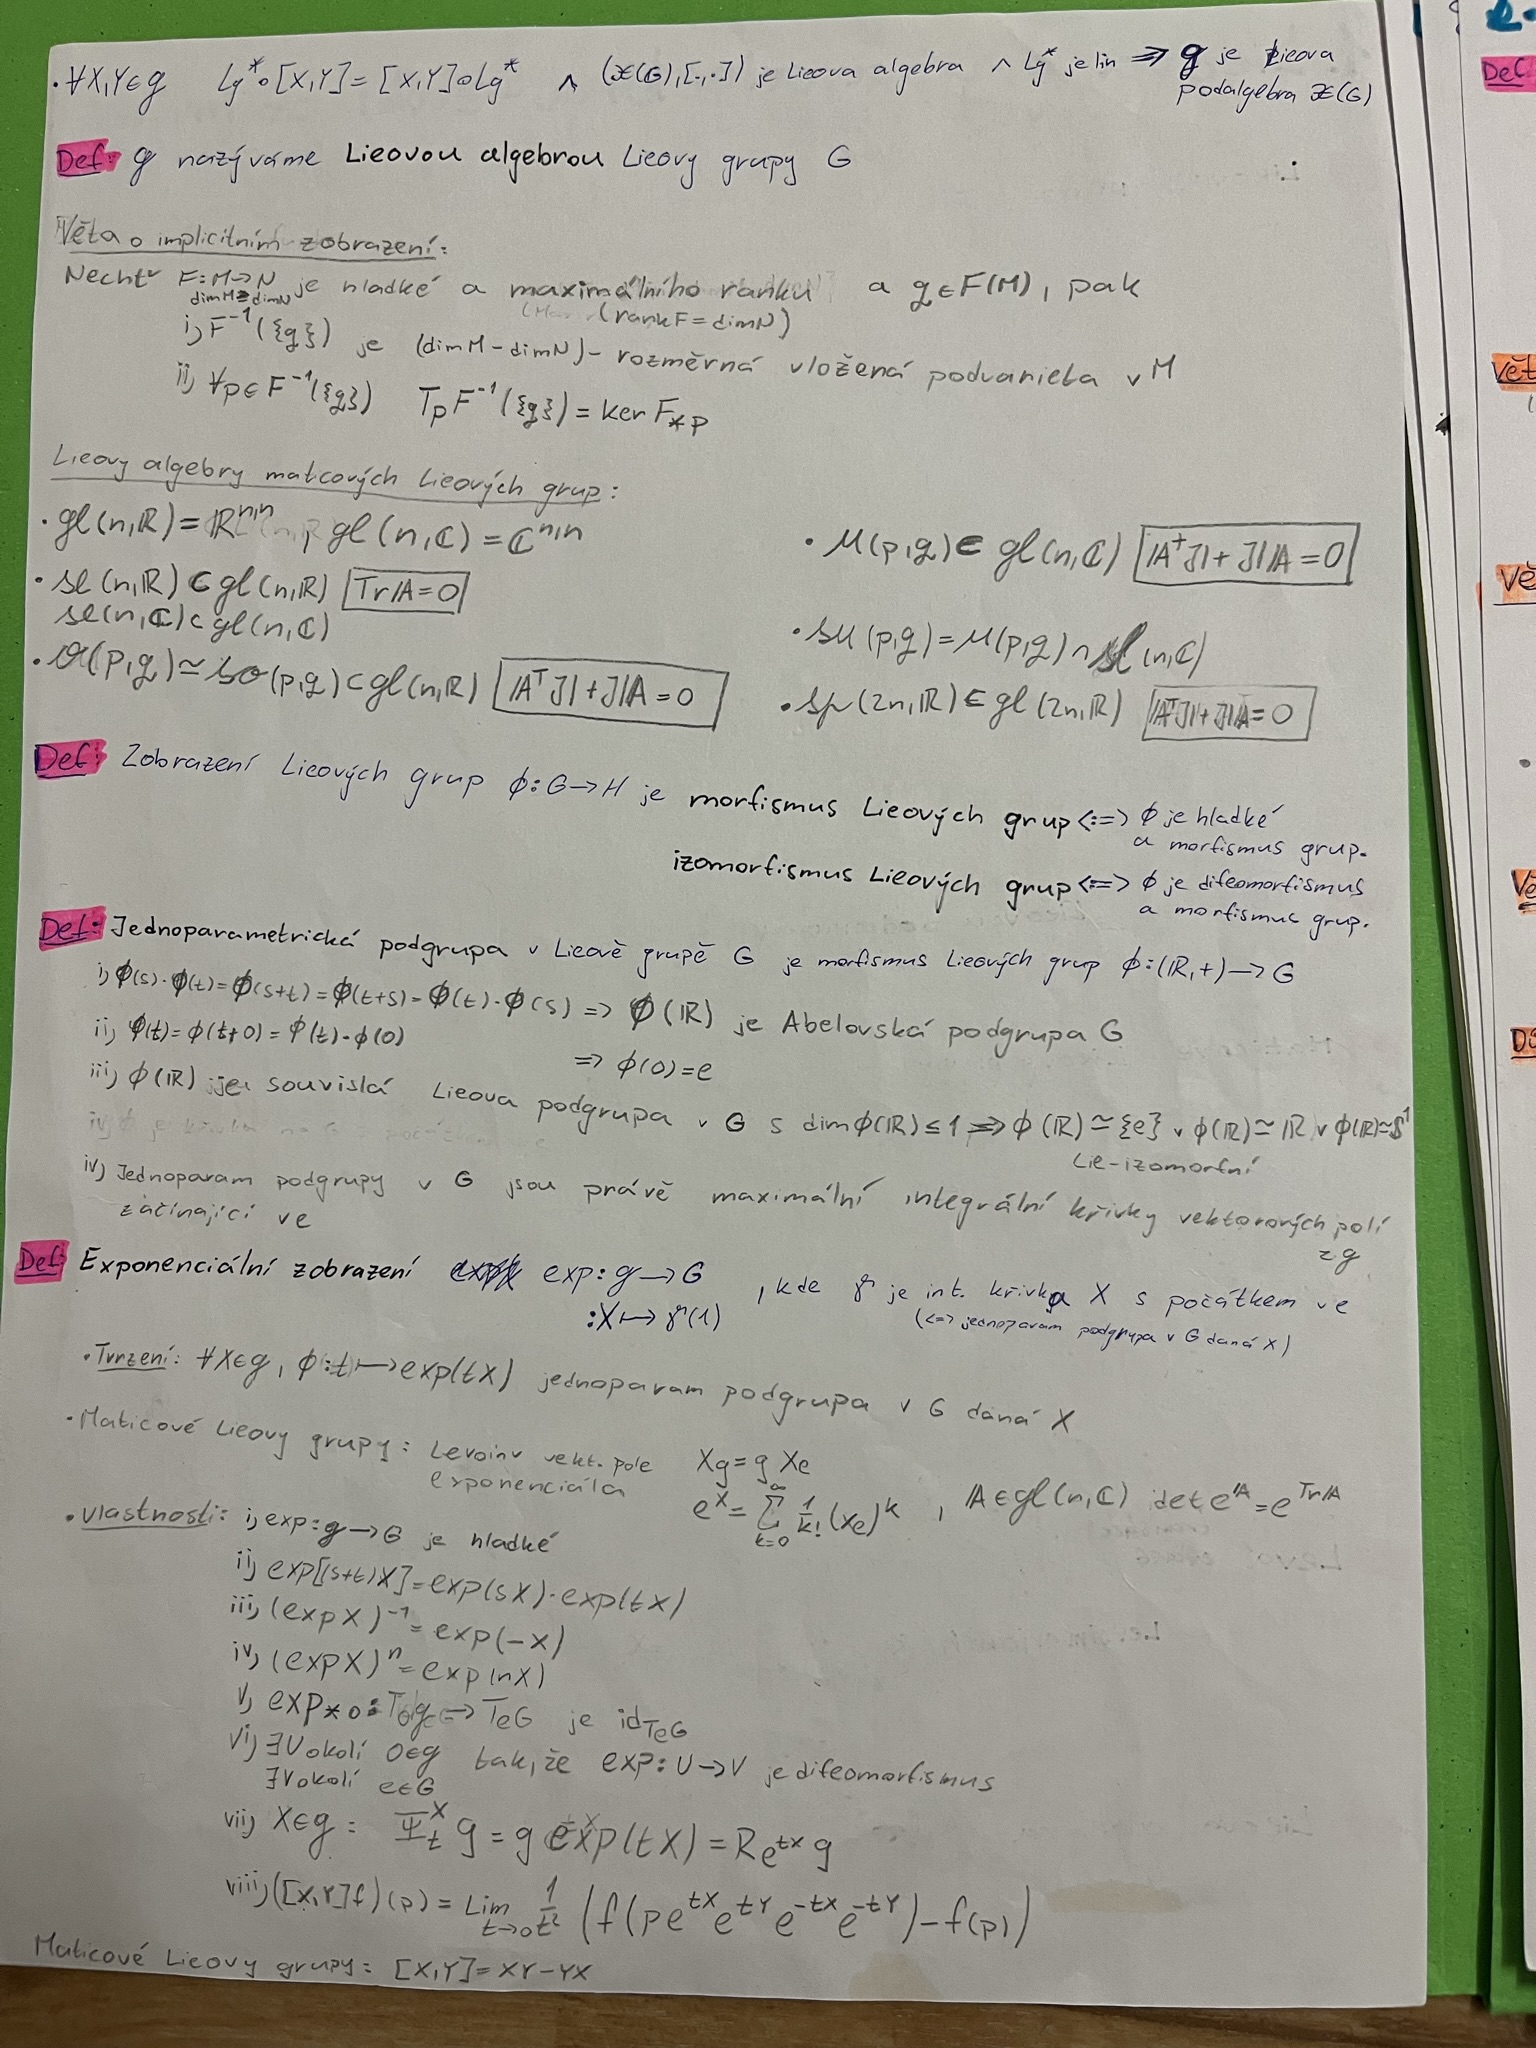 · ∀X,Y∈g Lg*∘[X,Y]=[X,Y]∘Lg* ∧ (𝔛(G),[.,.]) je Lieova algebra ∧ Lg* je lin ⇒ g je Lieova
podalgebra 𝔛(G)
Def: g nazýváme Lieovou algebrou Lieovy grupy G
Věta o implicitním zobrazení:
Nechť F:M→N je hladké a maximálního ranku a q∈F(M), pak
dimM≥dimN (rankF=dimN)
i) F⁻¹({q}) je (dimM-dimN)-rozměrná vložená podvarieta v M
ii) ∀p∈F⁻¹({q}) TpF⁻¹({q})=ker F*p
Lieovy algebry matcových Lieových grup:
· gl(n,ℝ)=ℝⁿ'ⁿ, gl(n,ℂ)=ℂⁿ'ⁿ
· sl(n,ℝ)⊂gl(n,ℝ) Tr𝔸=0
sl(n,ℂ)⊂gl(n,ℂ)
· o(p,q)≃so(p,q)⊂gl(n,ℝ) 𝔸ᵀ𝕁+𝕁𝔸=0
· u(p,q)⊂gl(n,ℂ) 𝔸⁺𝕁+𝕁𝔸=0
· su(p,q)=u(p,q)∩sl(n,ℂ)
· sp(2n,ℝ)⊂gl(2n,ℝ) 𝔸ᵀ𝕁+𝕁𝔸=0
Def: Zobrazení Lieových grup ϕ:G→H je morfismus Lieových grup <:=> ϕ je hladké
a morfismus grup.
izomorfismus Lieových grup <:=> ϕ je difeomorfismus
a morfismus grup.
Def: Jednoparametrická podgrupa v Lieově grupě G je morfismus Lieových grup ϕ:(ℝ,+)→G
i) ϕ(s)·ϕ(t)=ϕ(s+t)=ϕ(t+s)=ϕ(t)·ϕ(s) => ϕ(ℝ) je Abelovská podgrupa G
ii) ϕ(t)=ϕ(t+0)=ϕ(t)·ϕ(0) => ϕ(0)=e
iii) ϕ(ℝ) je souvislá Lieova podgrupa v G s dimϕ(ℝ)≤1 => ϕ(ℝ)≃{e} ∨ ϕ(ℝ)≃ℝ ∨ ϕ(ℝ)≃S¹
Lie-izomorfní
iv) Jednoparam podgrupy v G jsou právě maximální integrální křivky vektorových polí
začínající v e z g
Def: Exponenciální zobrazení exp: g→G , kde γ je int. křivka X s počátkem v e
:X↦γ(1) (<=> jednoparam podgrupa v G daná X)
· Tvrzení: ∀X∈g, ϕ:t↦exp(tX) jednoparam podgrupa v G daná X
· Maticové Lieovy grupy: Levoinv vekt. pole Xg=g Xe
exponenciála e^X=∑_{k=0}^∞ 1/k! (Xe)^k , 𝔸∈gl(n,ℂ) det e^𝔸=e^{Tr𝔸}
· vlastnosti: i) exp: g→G je hladké
ii) exp[(s+t)X]=exp(sX)·exp(tX)
iii) (expX)⁻¹=exp(-X)
iv) (expX)ⁿ=exp(nX)
v) exp*0: T0g→TeG je id_TeG
vi) ∃U okolí 0∈g tak, že exp: U→V je difeomorfismus
∃V okolí e∈G
vii) X∈g: Ψ_t^X g = g exp(tX) = R_{e^{tX}} g
viii) ([X,Y]f)(p) = lim_{t→0} 1/t² (f(pe^{tX}e^{tY}e^{-tX}e^{-tY})-f(p))
Maticové Lieovy grupy: [X,Y]=XY-YX
Def
Vě